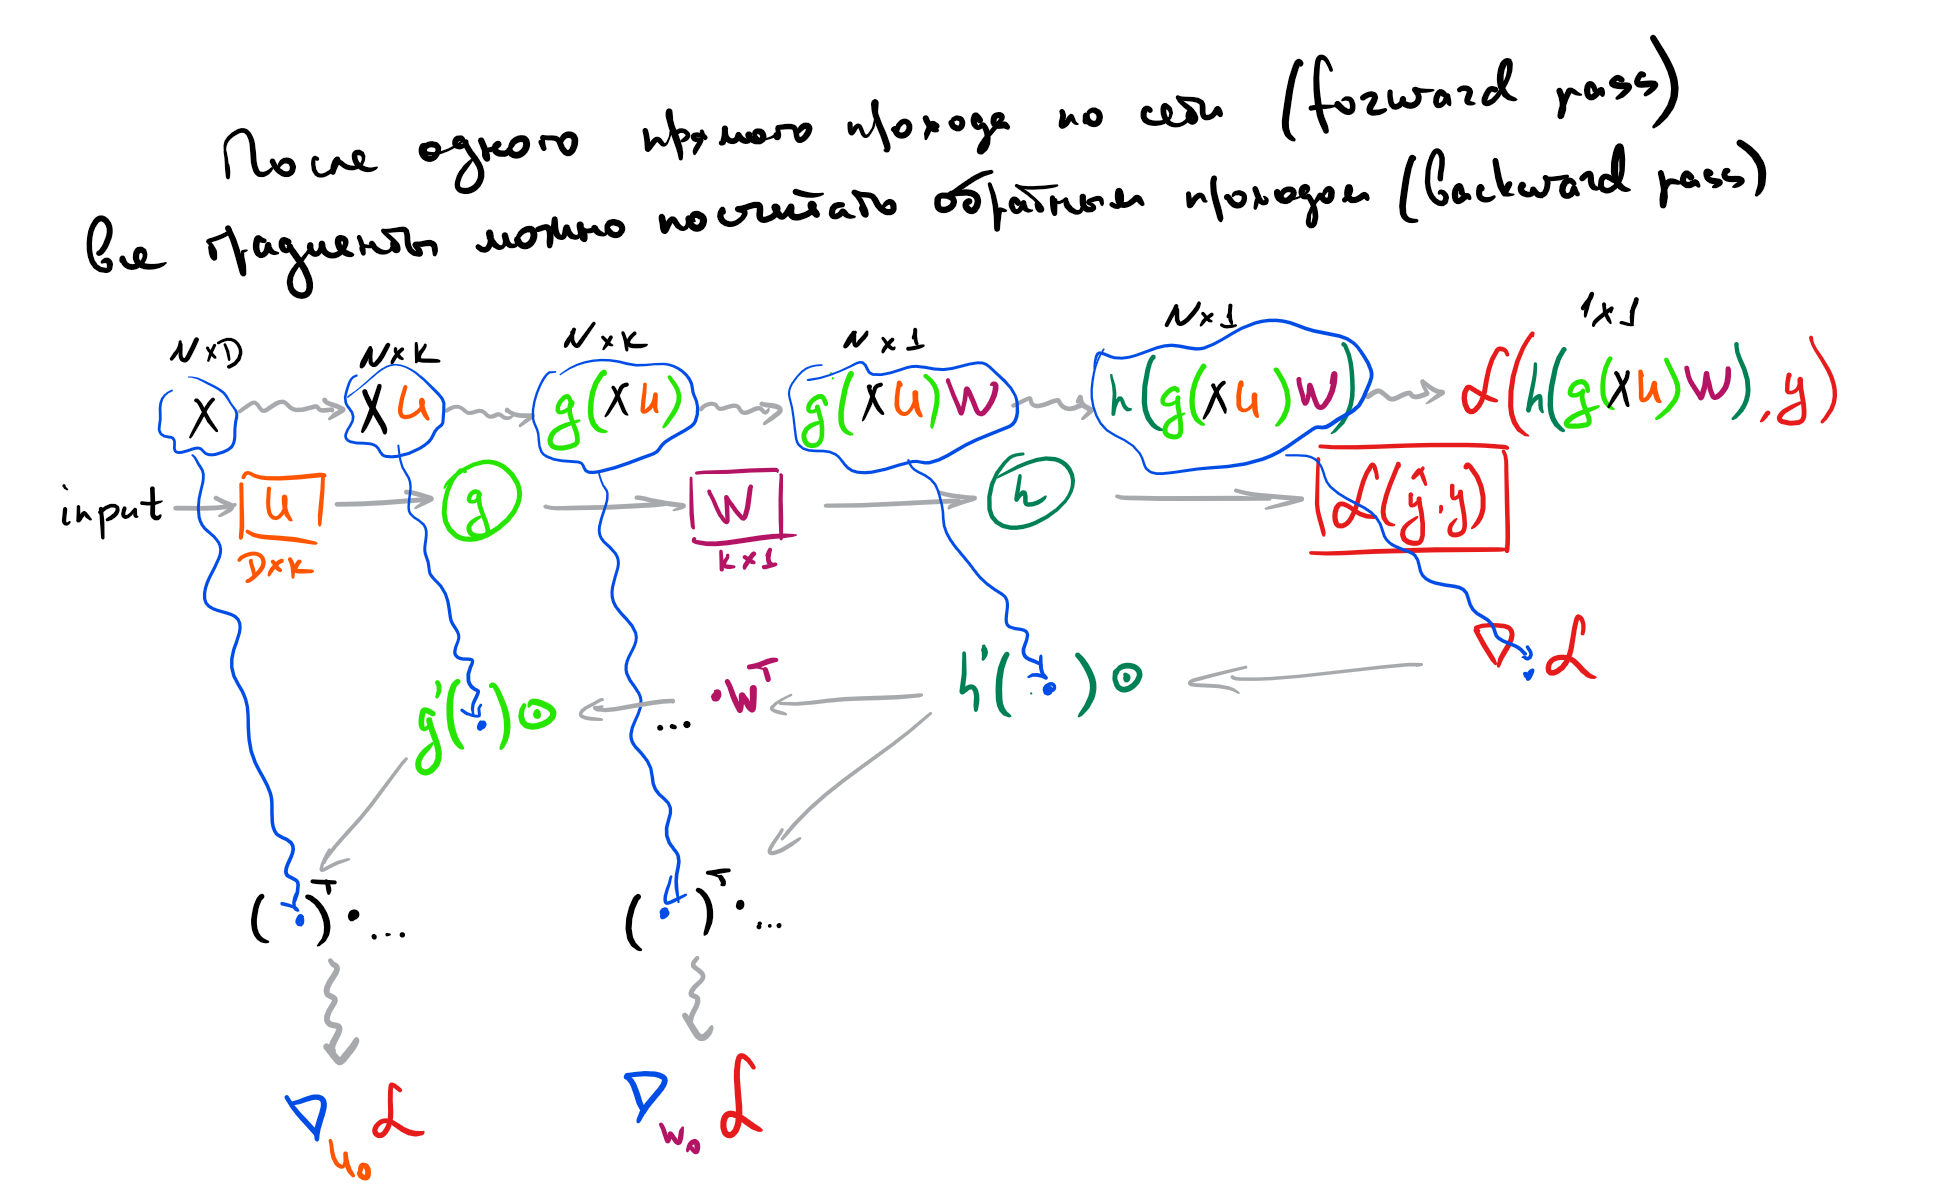 После одного прямого прохода по сети (forward pass)
все градиенты можно посчитать обратным проходом (backward pass)
N×D N×K N×K N×1 N×1 1×1
X XU g(XU) g(XU)W h(g(XU)W) ℒ(h(g(XU)W), y)
input U g W h ℒ(ŷ, y)
D×K K×1
∇. ℒ
g'(.)⊙ ... ·Wᵀ h'(.)⊙
(.)ᵀ·... (.)ᵀ·...
∇U₀ ℒ ∇W₀ ℒ